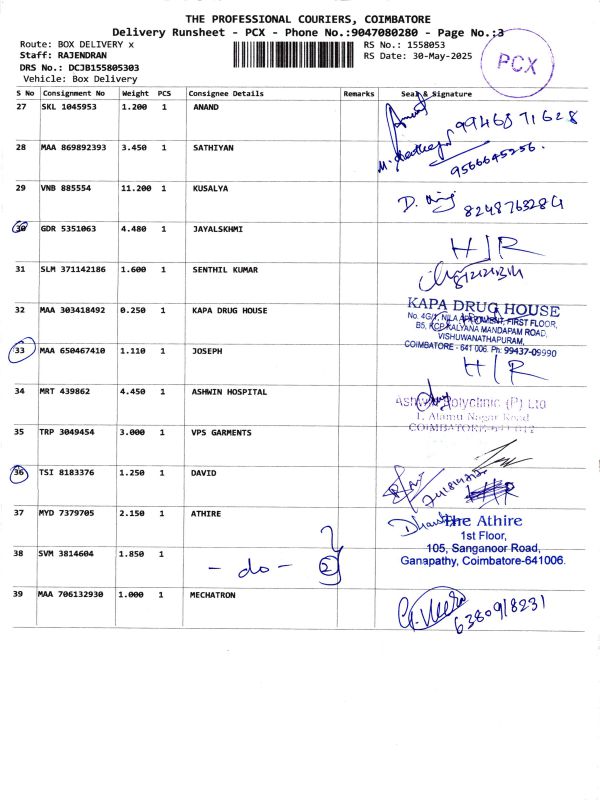 THE PROFESSIONAL COURIERS, COIMBATORE
Delivery Runsheet - PCX - Phone No.:9047080280 - Page No.:3
Route: BOX DELIVERY x
Staff: RAJENDRAN
DRS No.: DCJB155805303
Vehicle: Box Delivery
RS No.: 1558053
RS Date: 30-May-2025
PCX
S No Consignment No Weight PCS Consignee Details Remarks Seal & Signature
27 SKL 1045953 1.200 1 ANAND 9946871628
28 MAA 869892393 3.450 1 SATHIYAN 9566645256.
29 VNB 885554 11.200 1 KUSALYA D. 8248763284
30 GDR 5351063 4.480 1 JAYALSKHMI H/R
31 SLM 371142186 1.600 1 SENTHIL KUMAR
32 MAA 303418492 0.250 1 KAPA DRUG HOUSE
KAPA DRUG HOUSE
No. 4G/1, NILA APARTMENT, FIRST FLOOR,
B5, KCP KALYANA MANDAPAM ROAD,
VISHUWANATHAPURAM,
COIMBATORE - 641 006. Ph: 99437-09990
33 MAA 650467410 1.110 1 JOSEPH H/R
34 MRT 439862 4.450 1 ASHWIN HOSPITAL
Ashwin Polyclinic (P) Ltd
1, Alamu Nagar Road
COIMBATORE-641 012
35 TRP 3049454 3.000 1 VPS GARMENTS
36 TSI 8183376 1.250 1 DAVID
37 MYD 7379705 2.150 1 ATHIRE
The Athire
1st Floor,
105, Sanganoor Road,
Ganapathy, Coimbatore-641006.
38 SVM 3814604 1.850 1 - do - 2
39 MAA 706132930 1.000 1 MECHATRON 6380918231